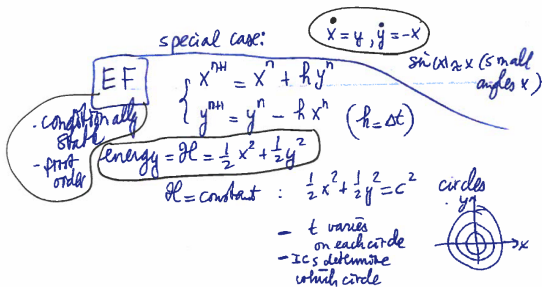 special case:
ẋ = y, ẏ = -x
sin(x) ≈ x (small
angles x)
EF
{ x^{n+1} = x^n + h y^n
y^{n+1} = y^n - h x^n (h = Δt)
- conditionally
stable
- first
order
energy = ℋ = 1/2 x^2 + 1/2 y^2
ℋ = constant : 1/2 x^2 + 1/2 y^2 = c^2
circles
y
x
- t varies
on each circle
- ICs determine
which circle